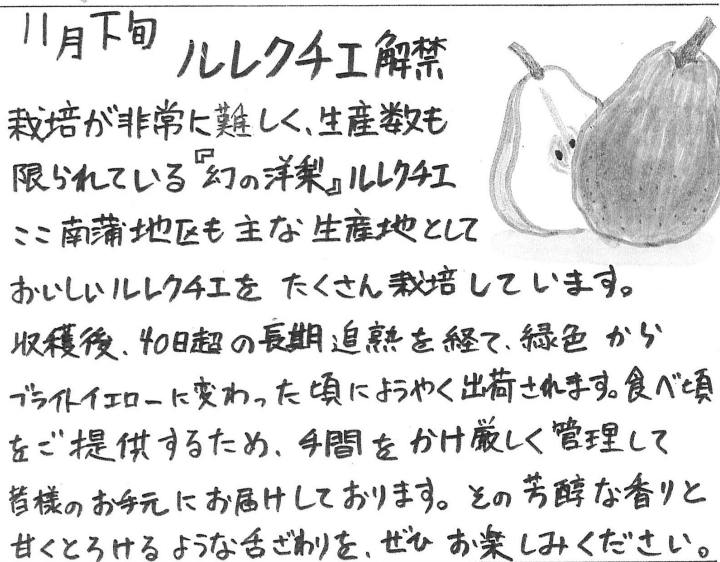 11月下旬
ルレクチエ解禁
栽培が非常に難しく、生産数も
限られている『幻の洋梨』ルレクチエ
ここ南蒲地区も主な生産地として
おいしいルレクチエを たくさん栽培しています。
収穫後、40日超の長期追熟を経て、緑色から
ブライトイエローに変わった頃にようやく出荷されます。食べ頃
をご提供するため、手間をかけ厳しく管理して
皆様のお手元にお届けしております。その芳醇な香りと
甘くとろけるような舌ざわりを、ぜひお楽しみください。